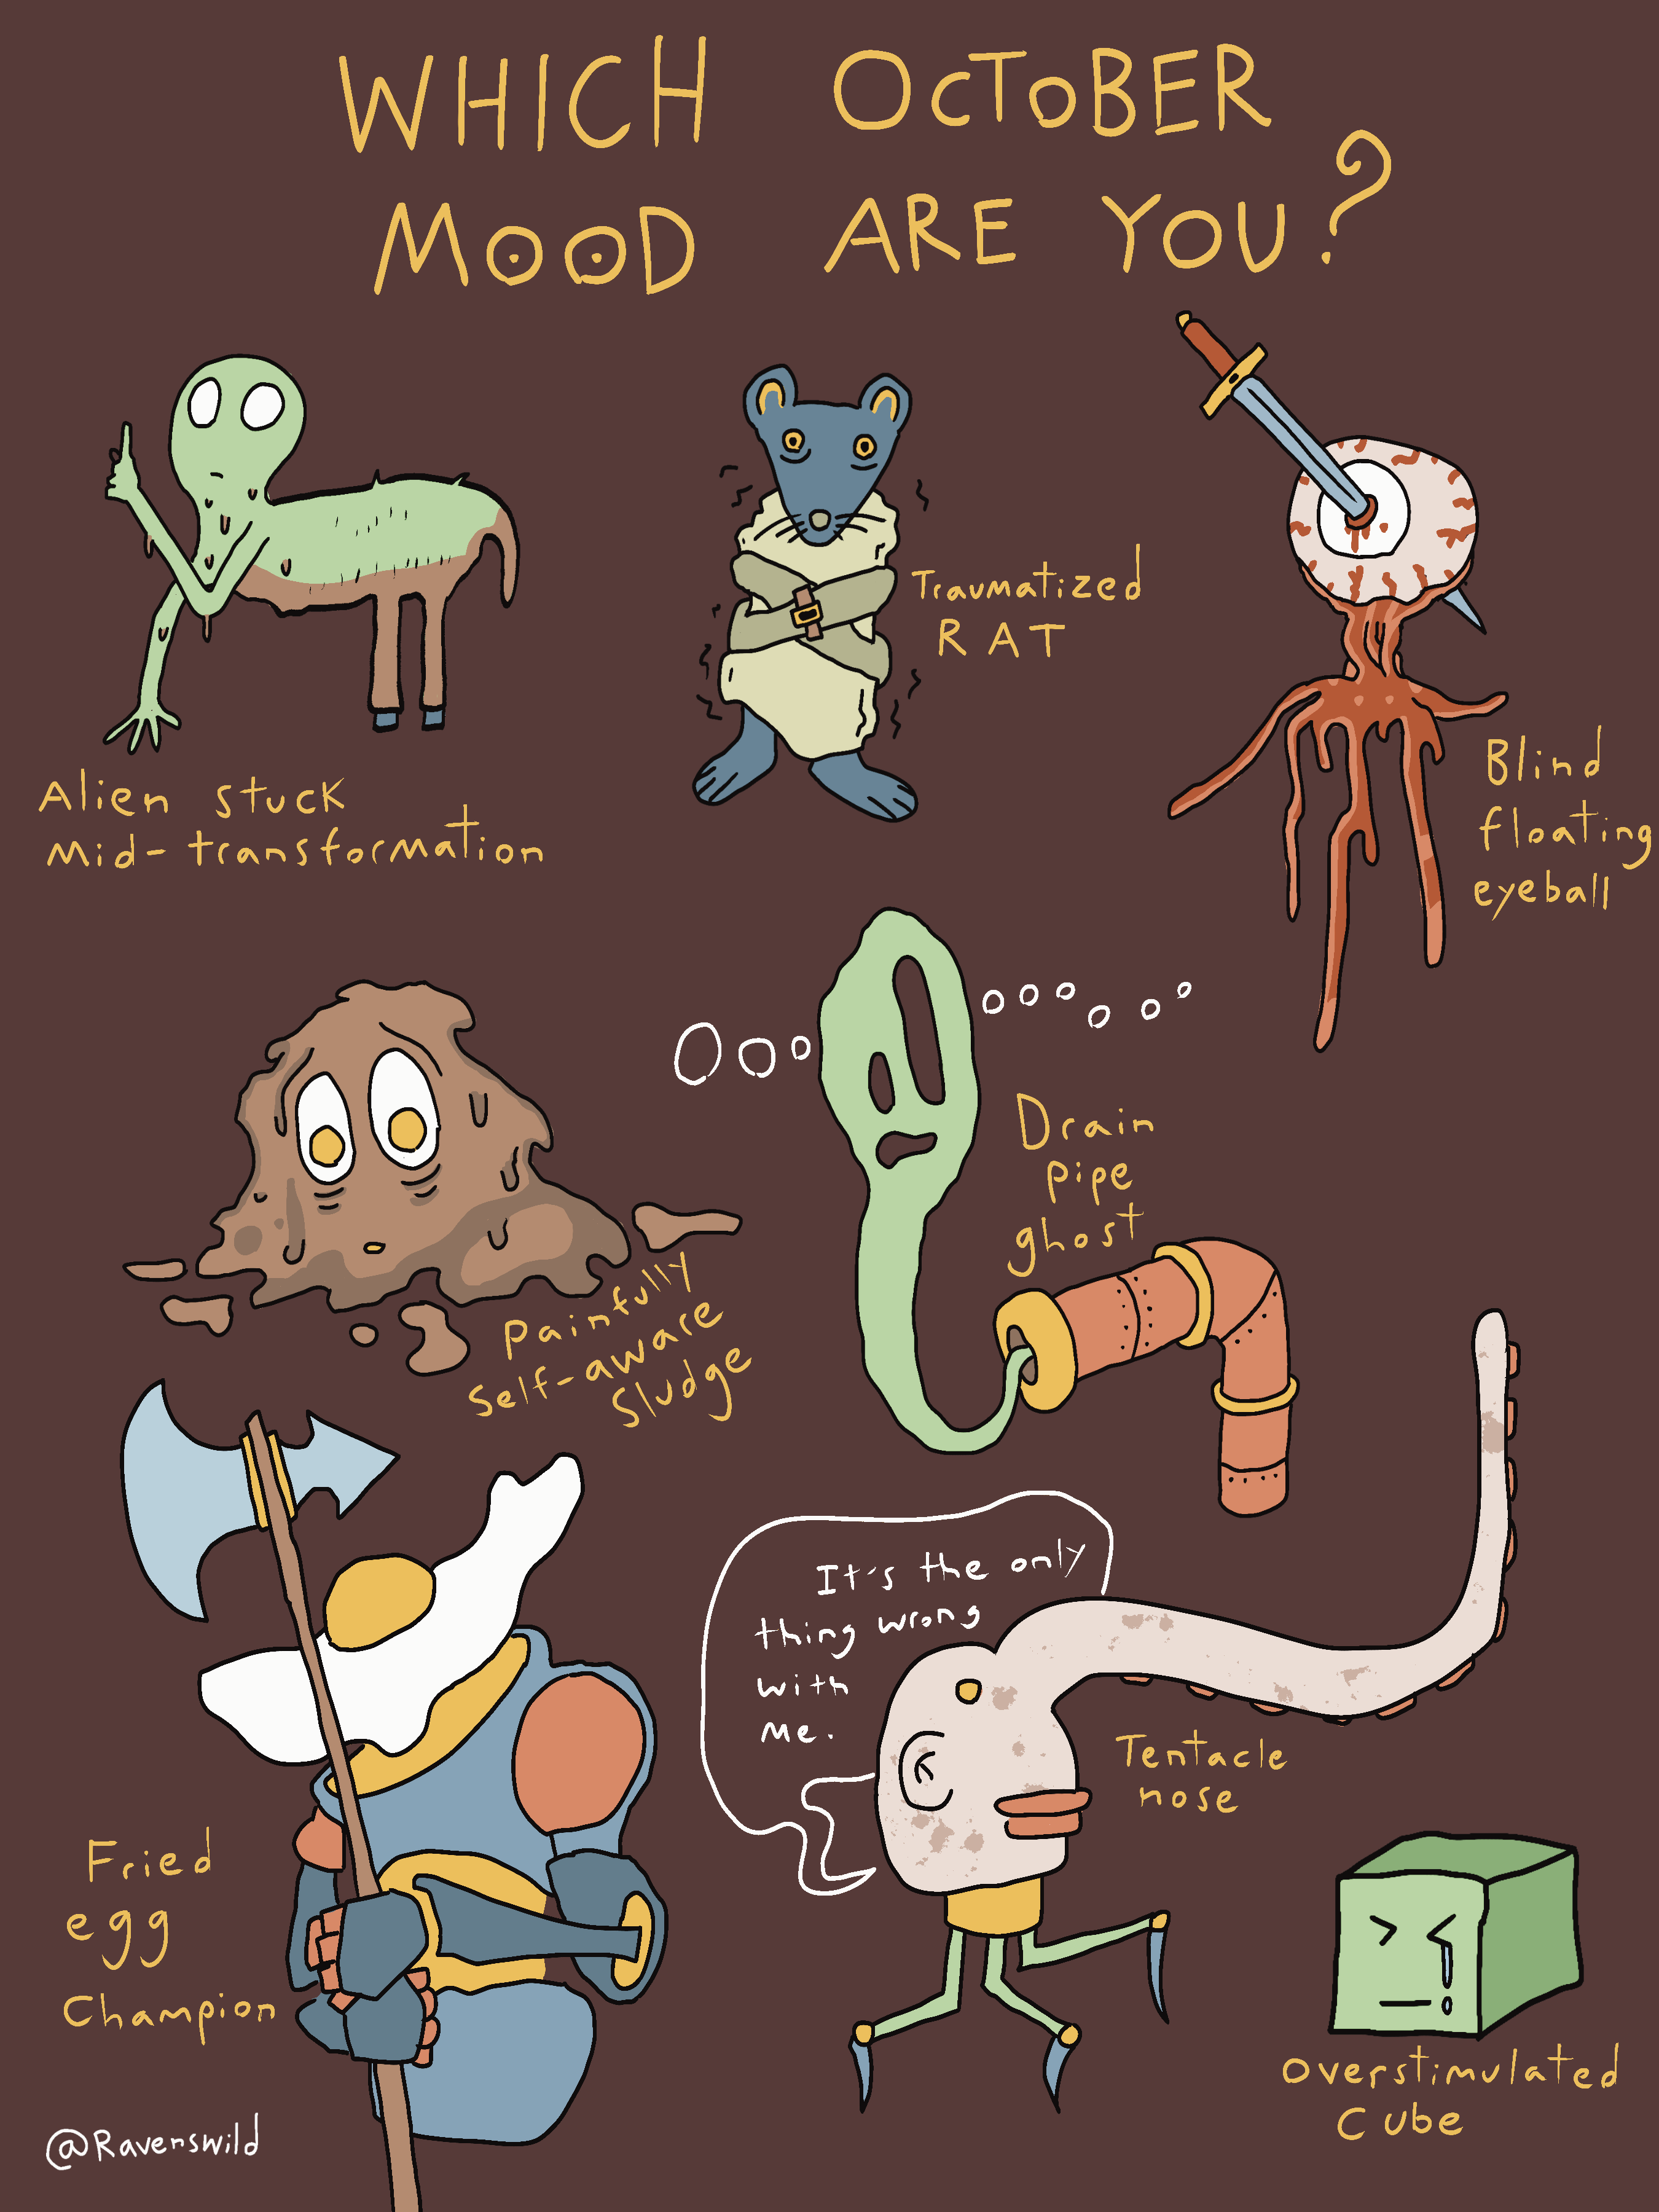 WHICH OCTOBER
MOOD ARE YOU?
Alien stuck
Mid-transformation
Traumatized
RAT
Blind
floating
eyeball
Painfully
Self-aware
Sludge
Ooo oooooo
Drain
pipe
ghost
Fried
egg
Champion
It's the only
thing wrong
with
me.
Tentacle
nose
Overstimulated
Cube
@Ravenswild